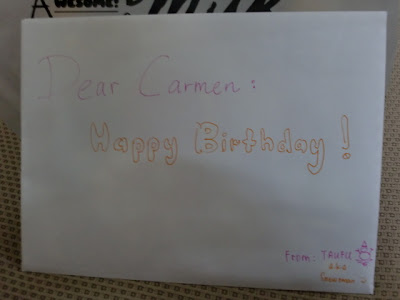 AWESOME!
Milk
Dear Carmen:
Happy Birthday!
From: TAUFU
aka